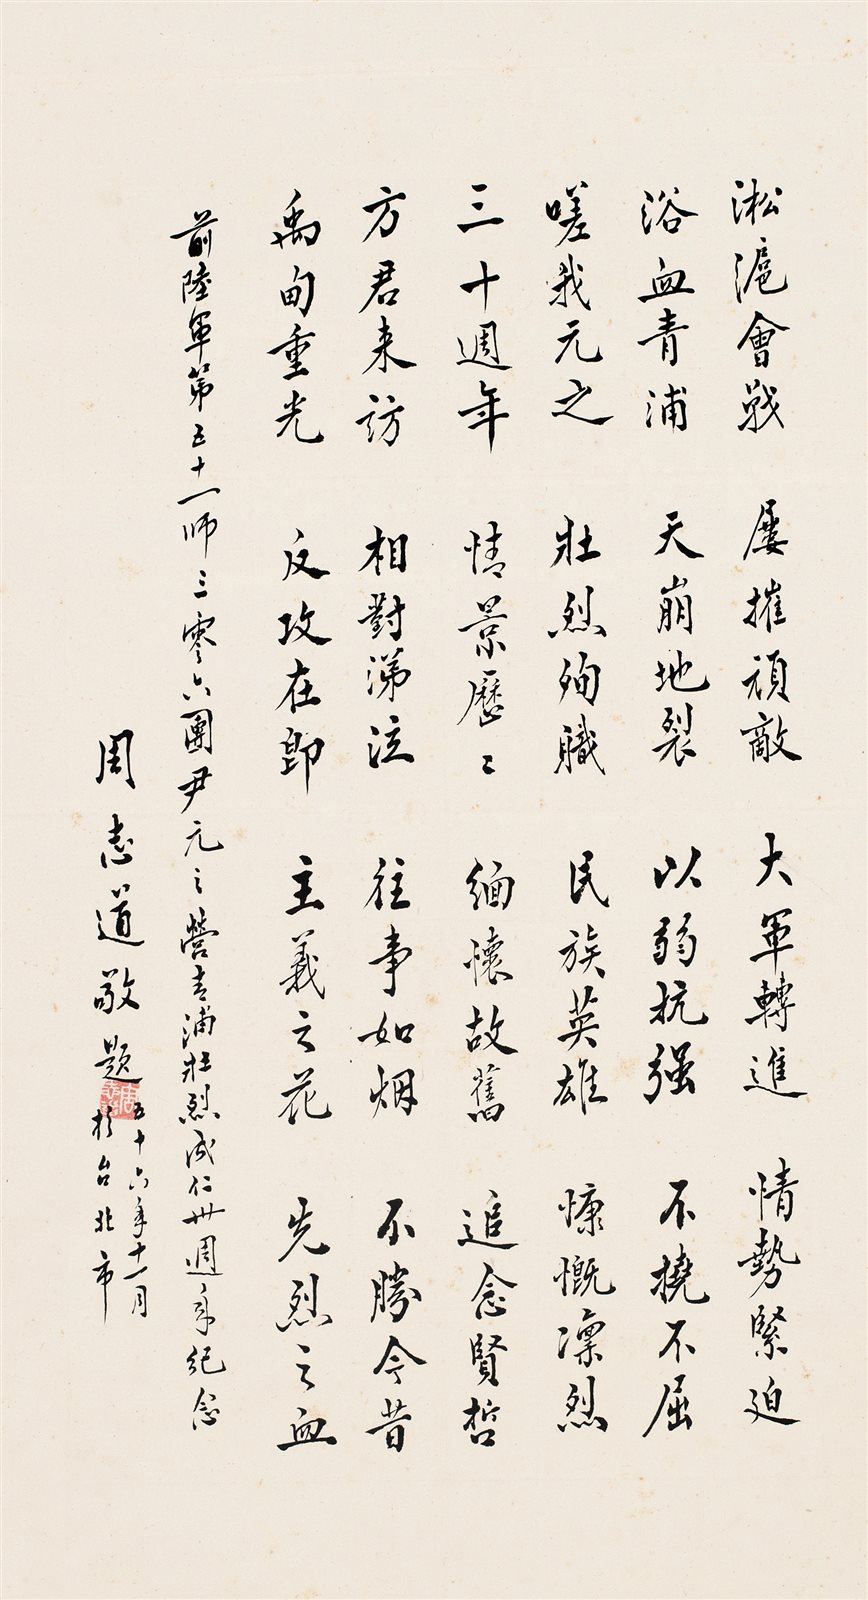 淞滬會戰 屢摧頑敵 大軍轉進 情勢緊迫
浴血青浦 天崩地裂 以弱抗强 不撓不屈
嗟我元之 壯烈殉職 民族英雄 慷慨凛烈
三十週年 情景歷〻 緬懷故舊 追念賢哲
方君来訪 相對涕泣 往事如烟 不勝今昔
禹甸重光 反攻在即 主義之花 先烈之血
前陸軍第五十一師三零六團尹元之營青浦壯烈成仁卅週年紀念
周志道敬題
五十六年十一月
於台北市